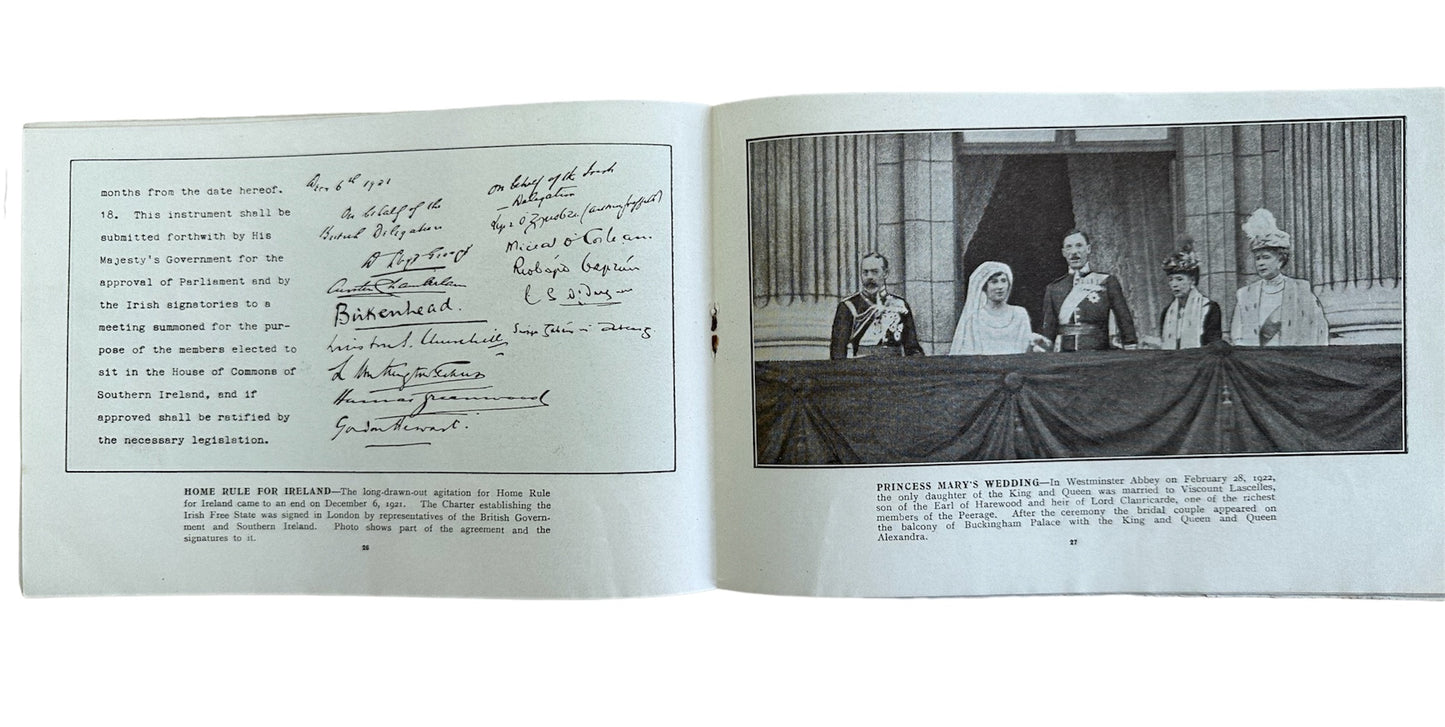 months from the date hereof.
18. This instrument shall be
submitted forthwith by His
Majesty's Government for the
approval of Parliament and by
the Irish signatories to a
meeting summoned for the pur-
pose of the members elected to
sit in the House of Commons of
Southern Ireland, and if
approved shall be ratified by
the necessary legislation.
6th 1921
On behalf of the
British Delegation
D Lloyd George
Austen Chamberlain
Birkenhead.
Winston S. Churchill
L Worthington Evans
Hamar Greenwood
Gordon Hewart.
On behalf of the Irish
Delegation
Art Ó Gríobhtha
Micheál Ó Coileain.
Riobárd Bartún
E S Ó Dugain
HOME RULE FOR IRELAND—The long-drawn-out agitation for Home Rule
for Ireland came to an end on December 6, 1921. The Charter establishing the
Irish Free State was signed in London by representatives of the British Govern-
ment and Southern Ireland. Photo shows part of the agreement and the
signatures to it.
26
PRINCESS MARY'S WEDDING—In Westminster Abbey on February 28, 1922,
the only daughter of the King and Queen was married to Viscount Lascelles,
son of the Earl of Harewood and heir of Lord Clanricarde, one of the richest
members of the Peerage. After the ceremony the bridal couple appeared on
the balcony of Buckingham Palace with the King and Queen and Queen
Alexandra.
27